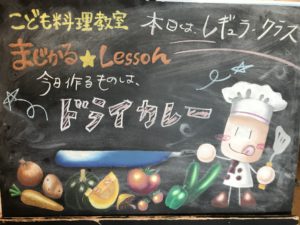 こども料理教室
本日は、レギュラークラス
まじかる★Lesson
今日作るものは、
ドライカレー